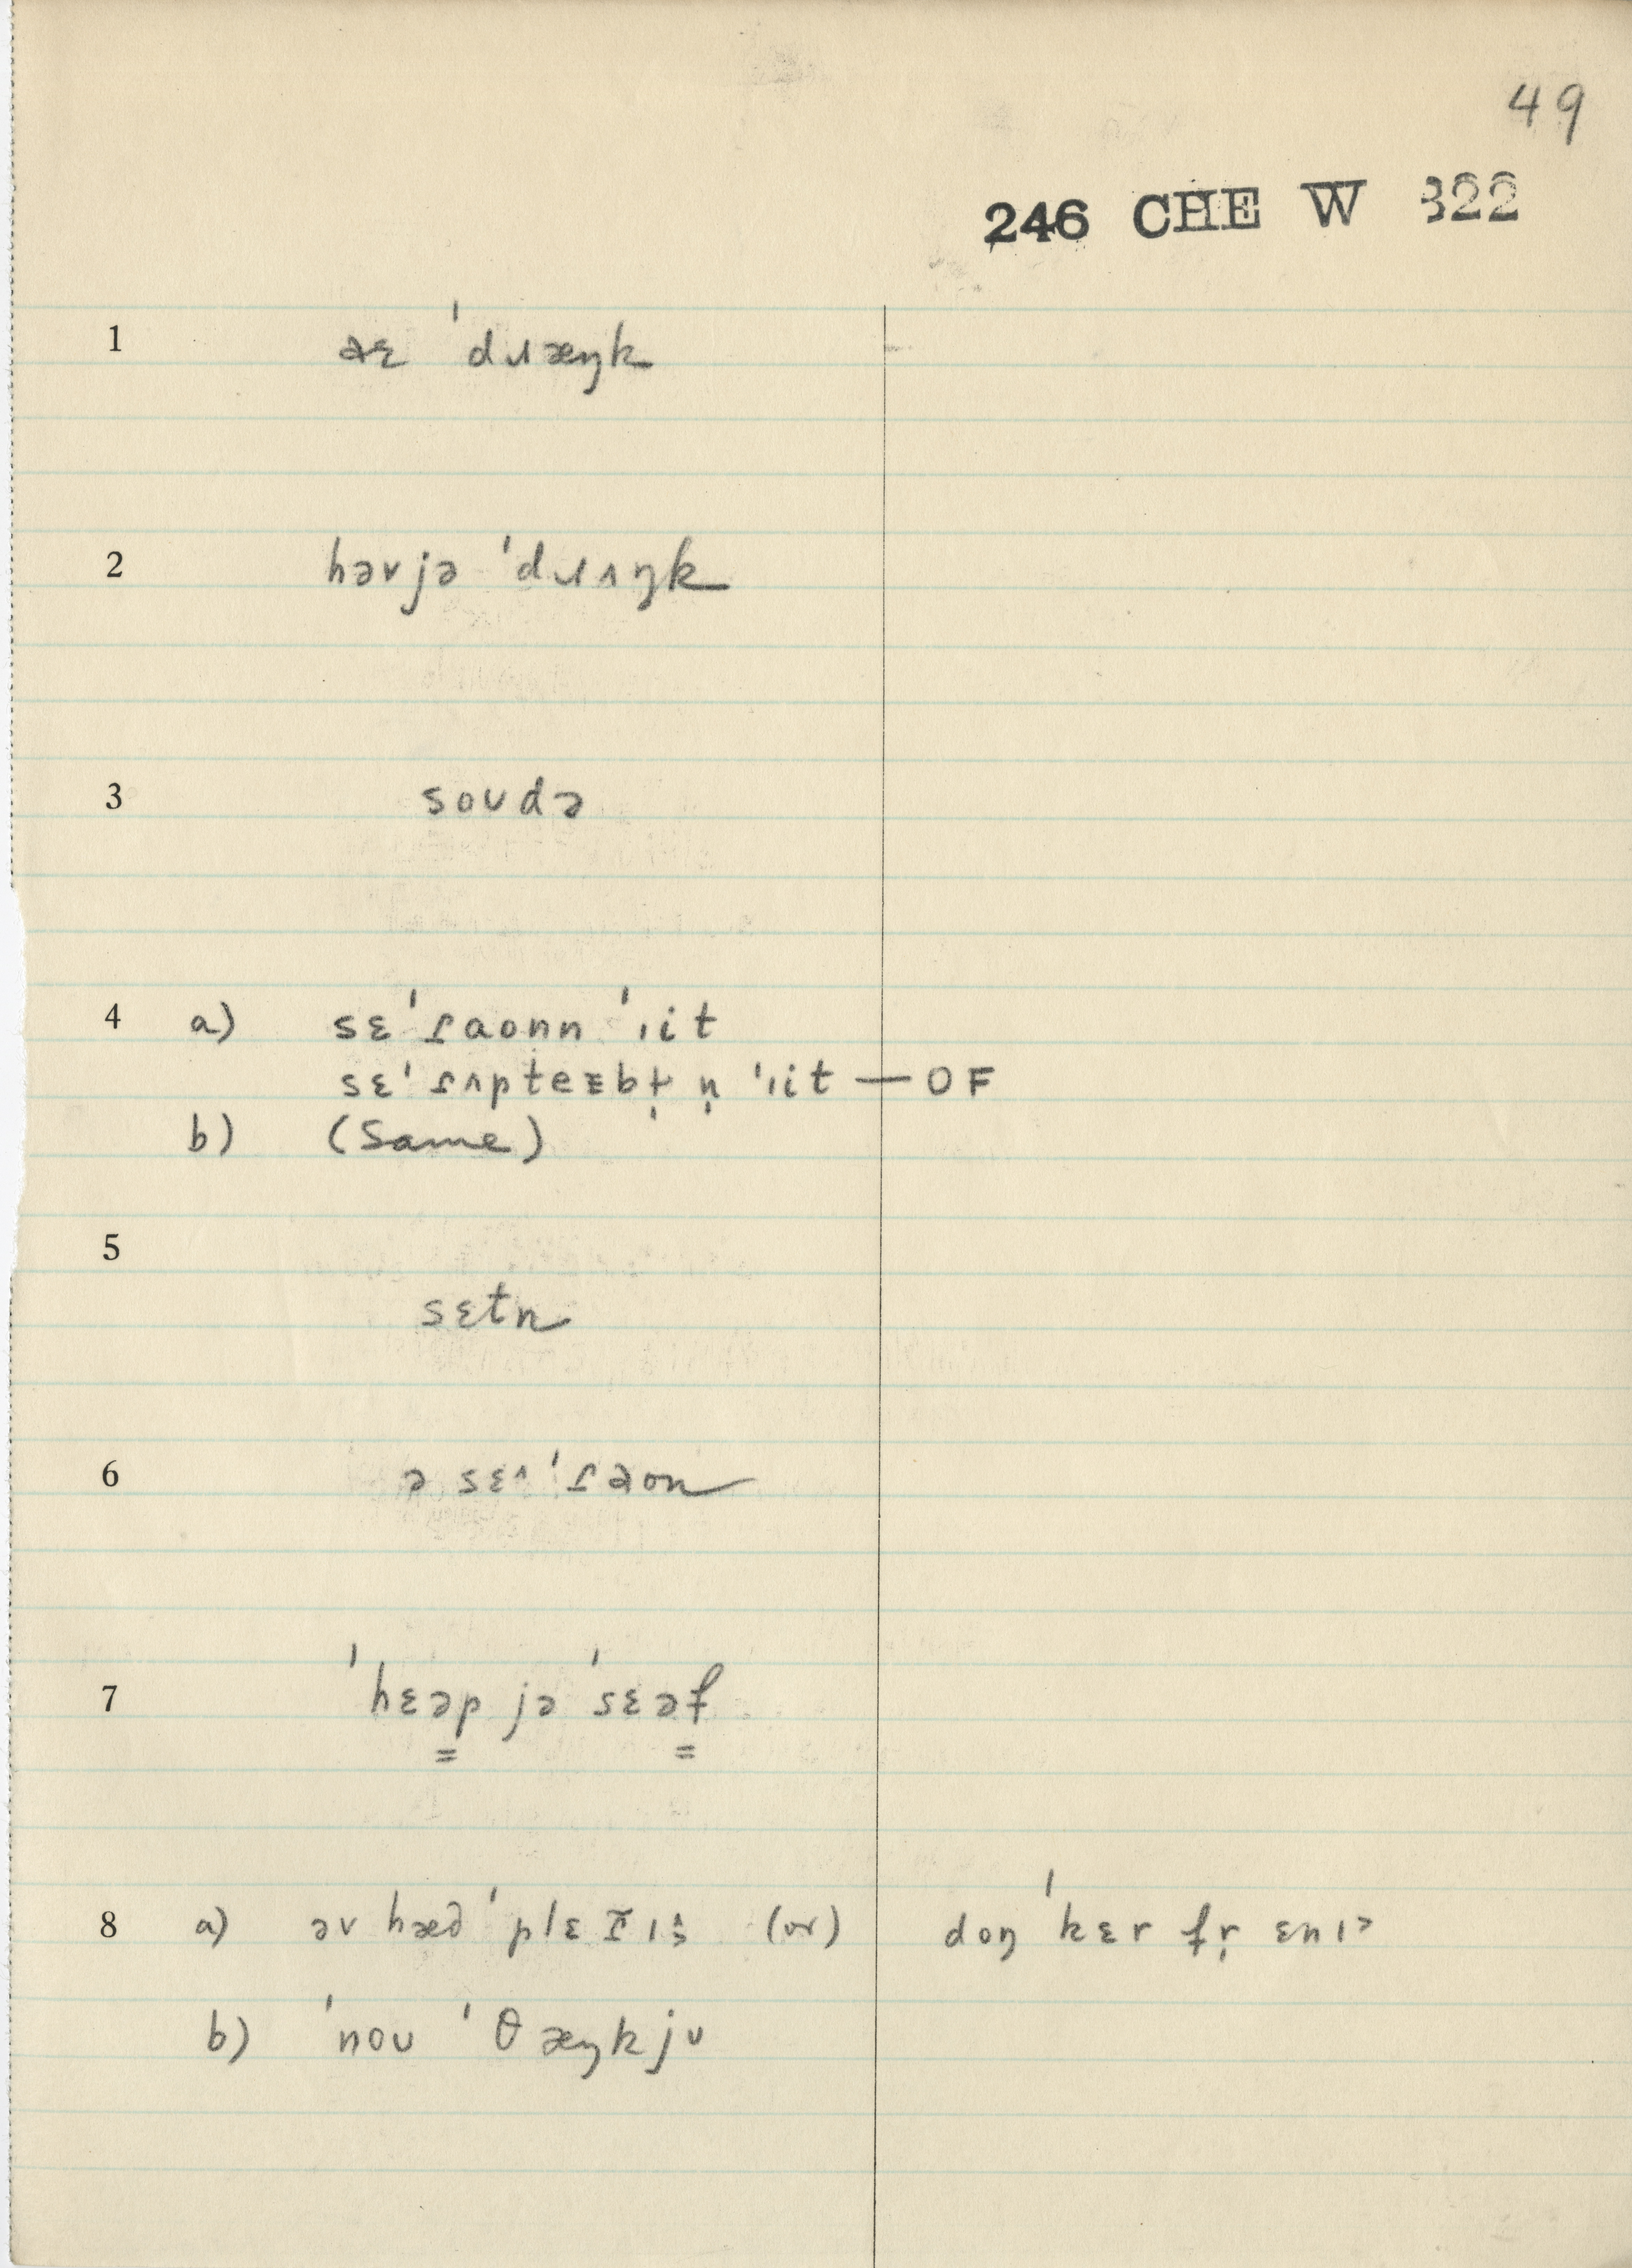 49
246 CHE W 322
1 aɛ ˈdɹæŋk
2 həvjə ˈdɹʌŋk
3 soʊdə
4 a) sɛˈɾaonn ˈɪit
sɛˈɾʌpteɛbɫ̩ n̩ ˈɪit — OF
b) (Same)
5
sɛtn
6 ə sɛˈɾaon
7 ˈhɛəp jə ˈsɛəf
8 a) əv hæd ˈplɛ (or) doŋ ˈkɛr fr̩ ɛnɪ
b) ˈnoʊ ˈθæŋkjʊ